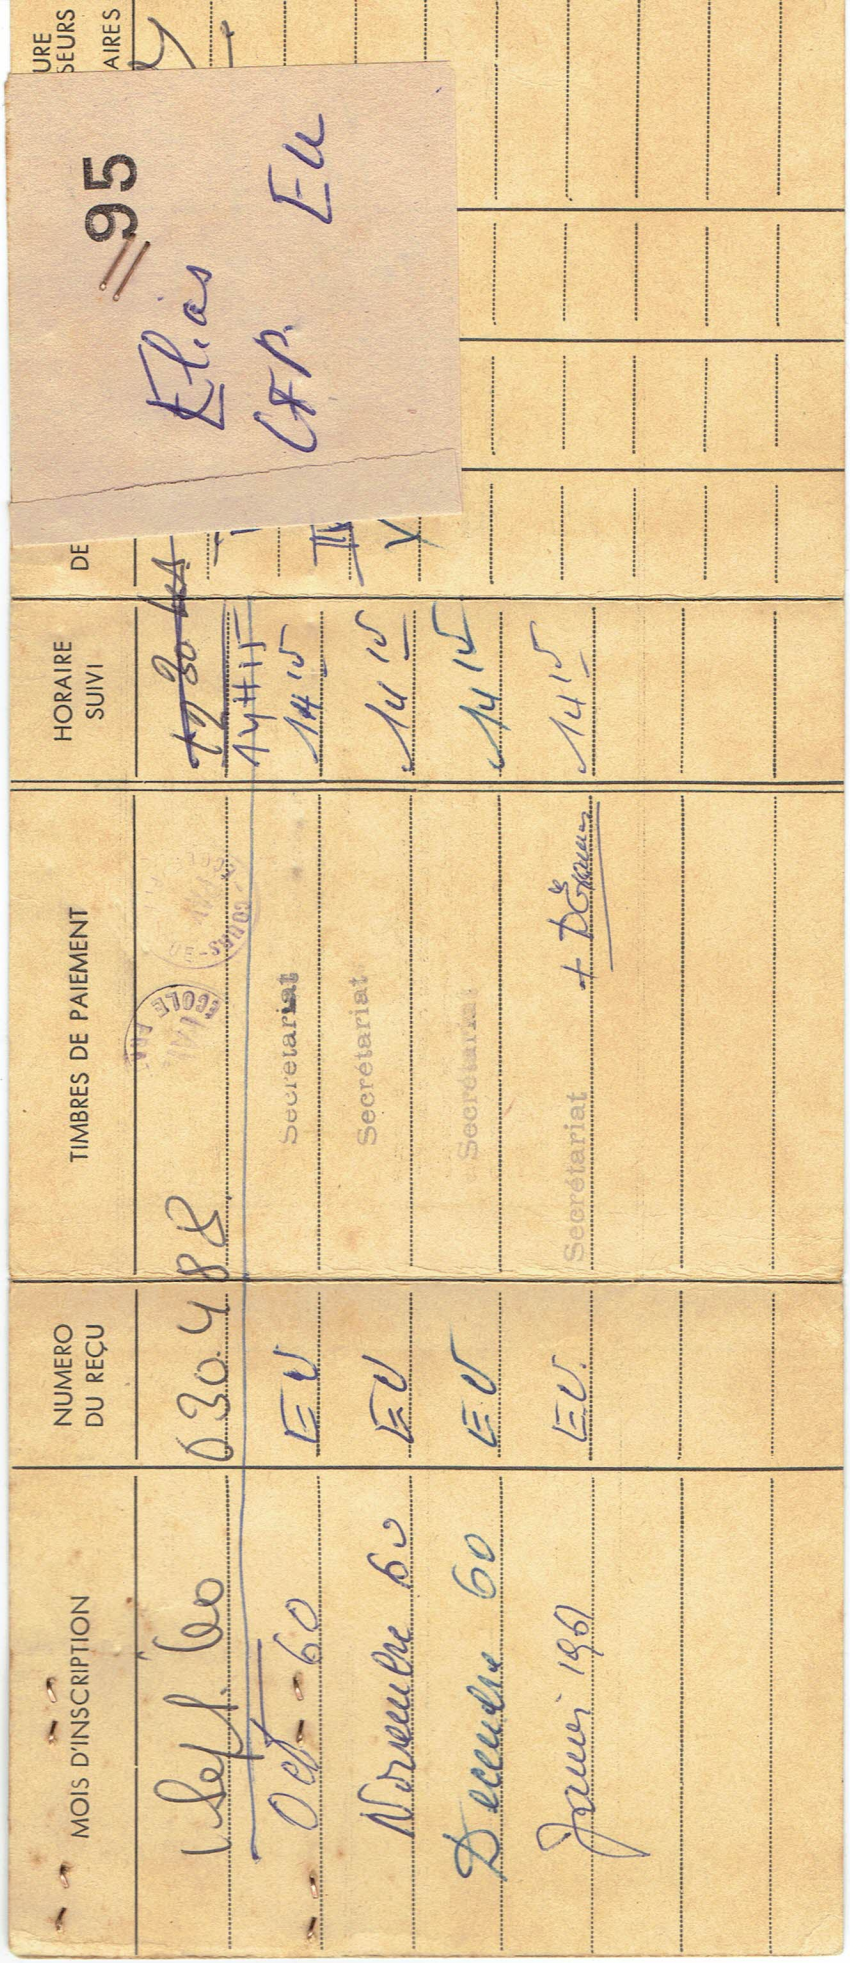 95
Elias
EU
MOIS D'INSCRIPTION
NUMERO
DU REÇU
TIMBRES DE PAIEMENT
HORAIRE
SUIVI
DE
URE
SEURS
AIRES
Sept. 60 030488 ECOLE COURS
14H15
Oct - 60 EU Secrétariat 14 15 II
Novembre 60 EU Secrétariat 14 15 V
Decembre 60 EU Secrétariat 14 15
Janvier 1961 EU. Secrétariat 14 15